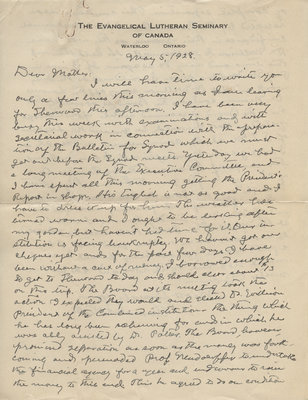 The Evangelical Lutheran Seminary
of Canada
Waterloo Ontario
May 5, 1928.
Dear Mother:
I will have time to write you
only a few lines this morning as I am leaving
for this afternoon. I have been very
busy this week with examinations and with
secretarial work in connection with the prepara-
tion of the Bulletin for Synod which we must
get out before the Synod meets. Yesterday we had
a long meeting of the Executive Committee and
I have spent all this morning getting the President's
Report in shape. His English is not so good and I
have to dress it up for him. The weather has
turned warm and I ought to be looking after
my garden but haven't had time for it. Our in-
stitution is facing bankruptcy. We haven't got our
cheques yet and for the past few days I have
been without a cent of money. I borrowed enough
to get to to-day and should clear about $
on this trip. The Board at its meeting took the
action I expected they would and elected Dr.
President of the Combined institution. The thing which
he has long been scheming for and in which he
was ably assisted by Dr. The Board however
promised separation as soon as the money was forth-
coming and persuaded Prof. to undertake
the financial agency for a year and endeavor to raise
the money to this end. This he agreed to do on condition